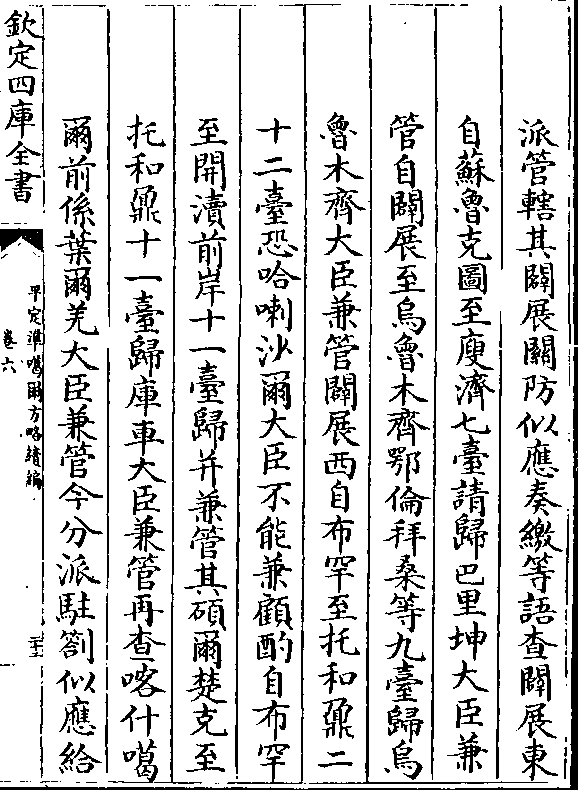 派管轄其闢展關防似應奏繳等語查闢展東
自蘇魯克圖至廋濟七臺請歸巴里坤大臣兼
管自闢展至烏魯木齊鄂倫拜桑等九臺歸烏
魯木齊大臣兼管闢展西自布罕至托和鼐二
十二臺恐哈喇沙爾大臣不能兼顧酌自布罕
至開瀆前岸十一臺歸并兼管其碩爾楚克至
托和鼐十一臺歸庫車大臣兼管再查喀什噶
爾前係葉爾羌大臣兼管今分派駐劄似應給
欽定四庫全書
平定準噶爾方略續編
卷六